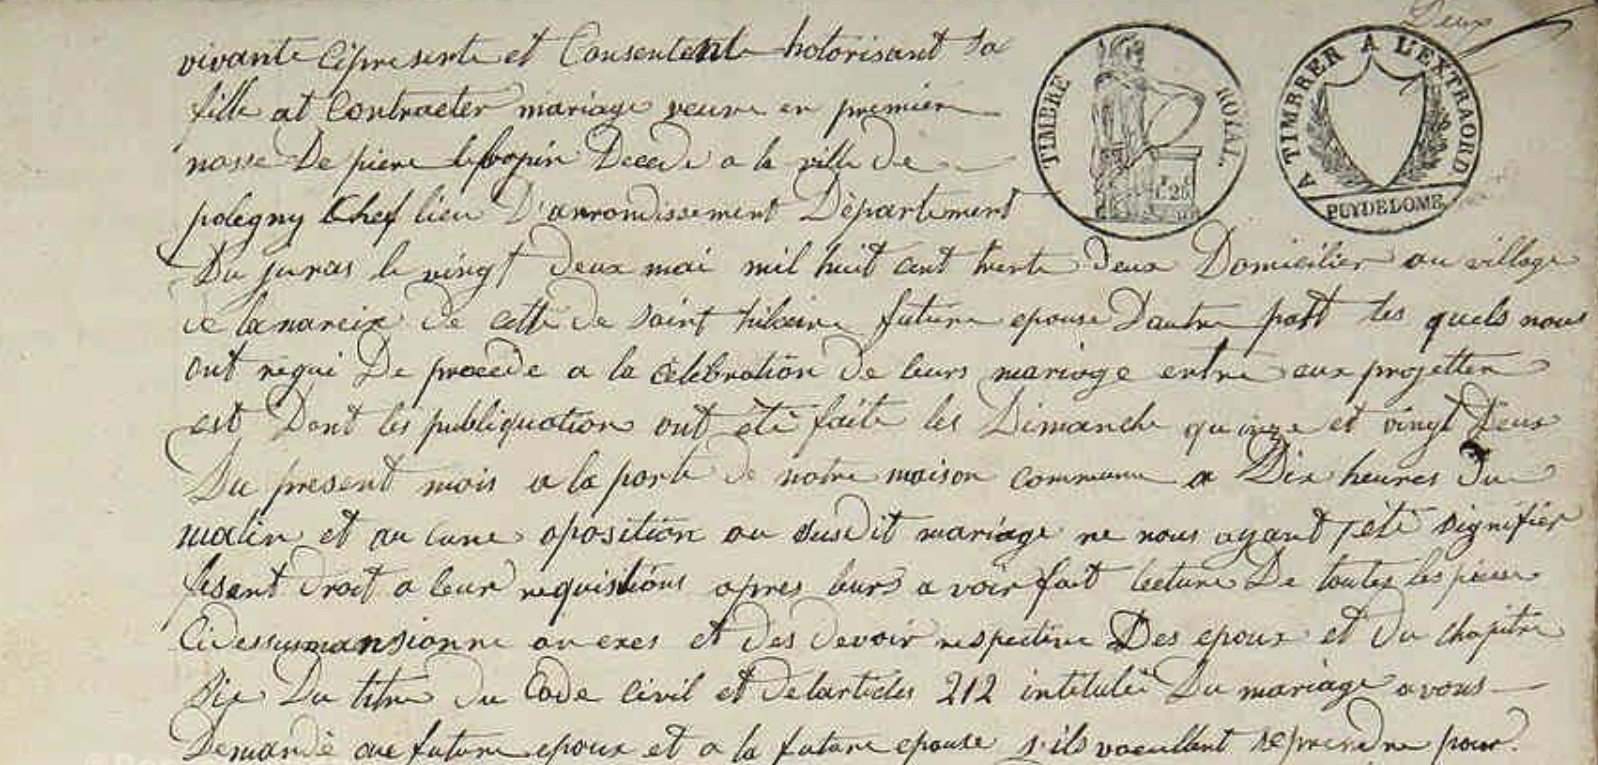 Deux
TIMBRE ROYAL.
A TIMBRER A L'EXTRAORD
PUYDEDOME
vivante ci presente et Consentent hotorisant sa
fille at Contracter mariage veuve en premier
nosse De piere Decede a la ville de
polegny Chef lieu D'arrondissement Departement
Du juras le vingt deux mai mil huit cent trente deux Domicilier au village
de lanareix de cette de saint hilaire future epouse D'autre part les quels nous
ont requi De procede a la celebration de leurs mariage entre eux projetter
est Dont les publiquation ont été faite les Dimanche quinze et vingt Deux
Du present mois a la porte de notre maison commune a Dix heures Du
matin et au cune oposition au susdit mariage ne nous ayant été signifier
fesant droit a leur requisitions apres leurs a voir fait lecture De toutes les pieces
Cidessumansionne anexes et des devoir respective Des epoux et du chapitre
Six Du titre du Code Civil et de larticles 212 intitulé Du mariage avons
Demandé au future epoux et a la future epouse s'ils vaeullent se prendre pour